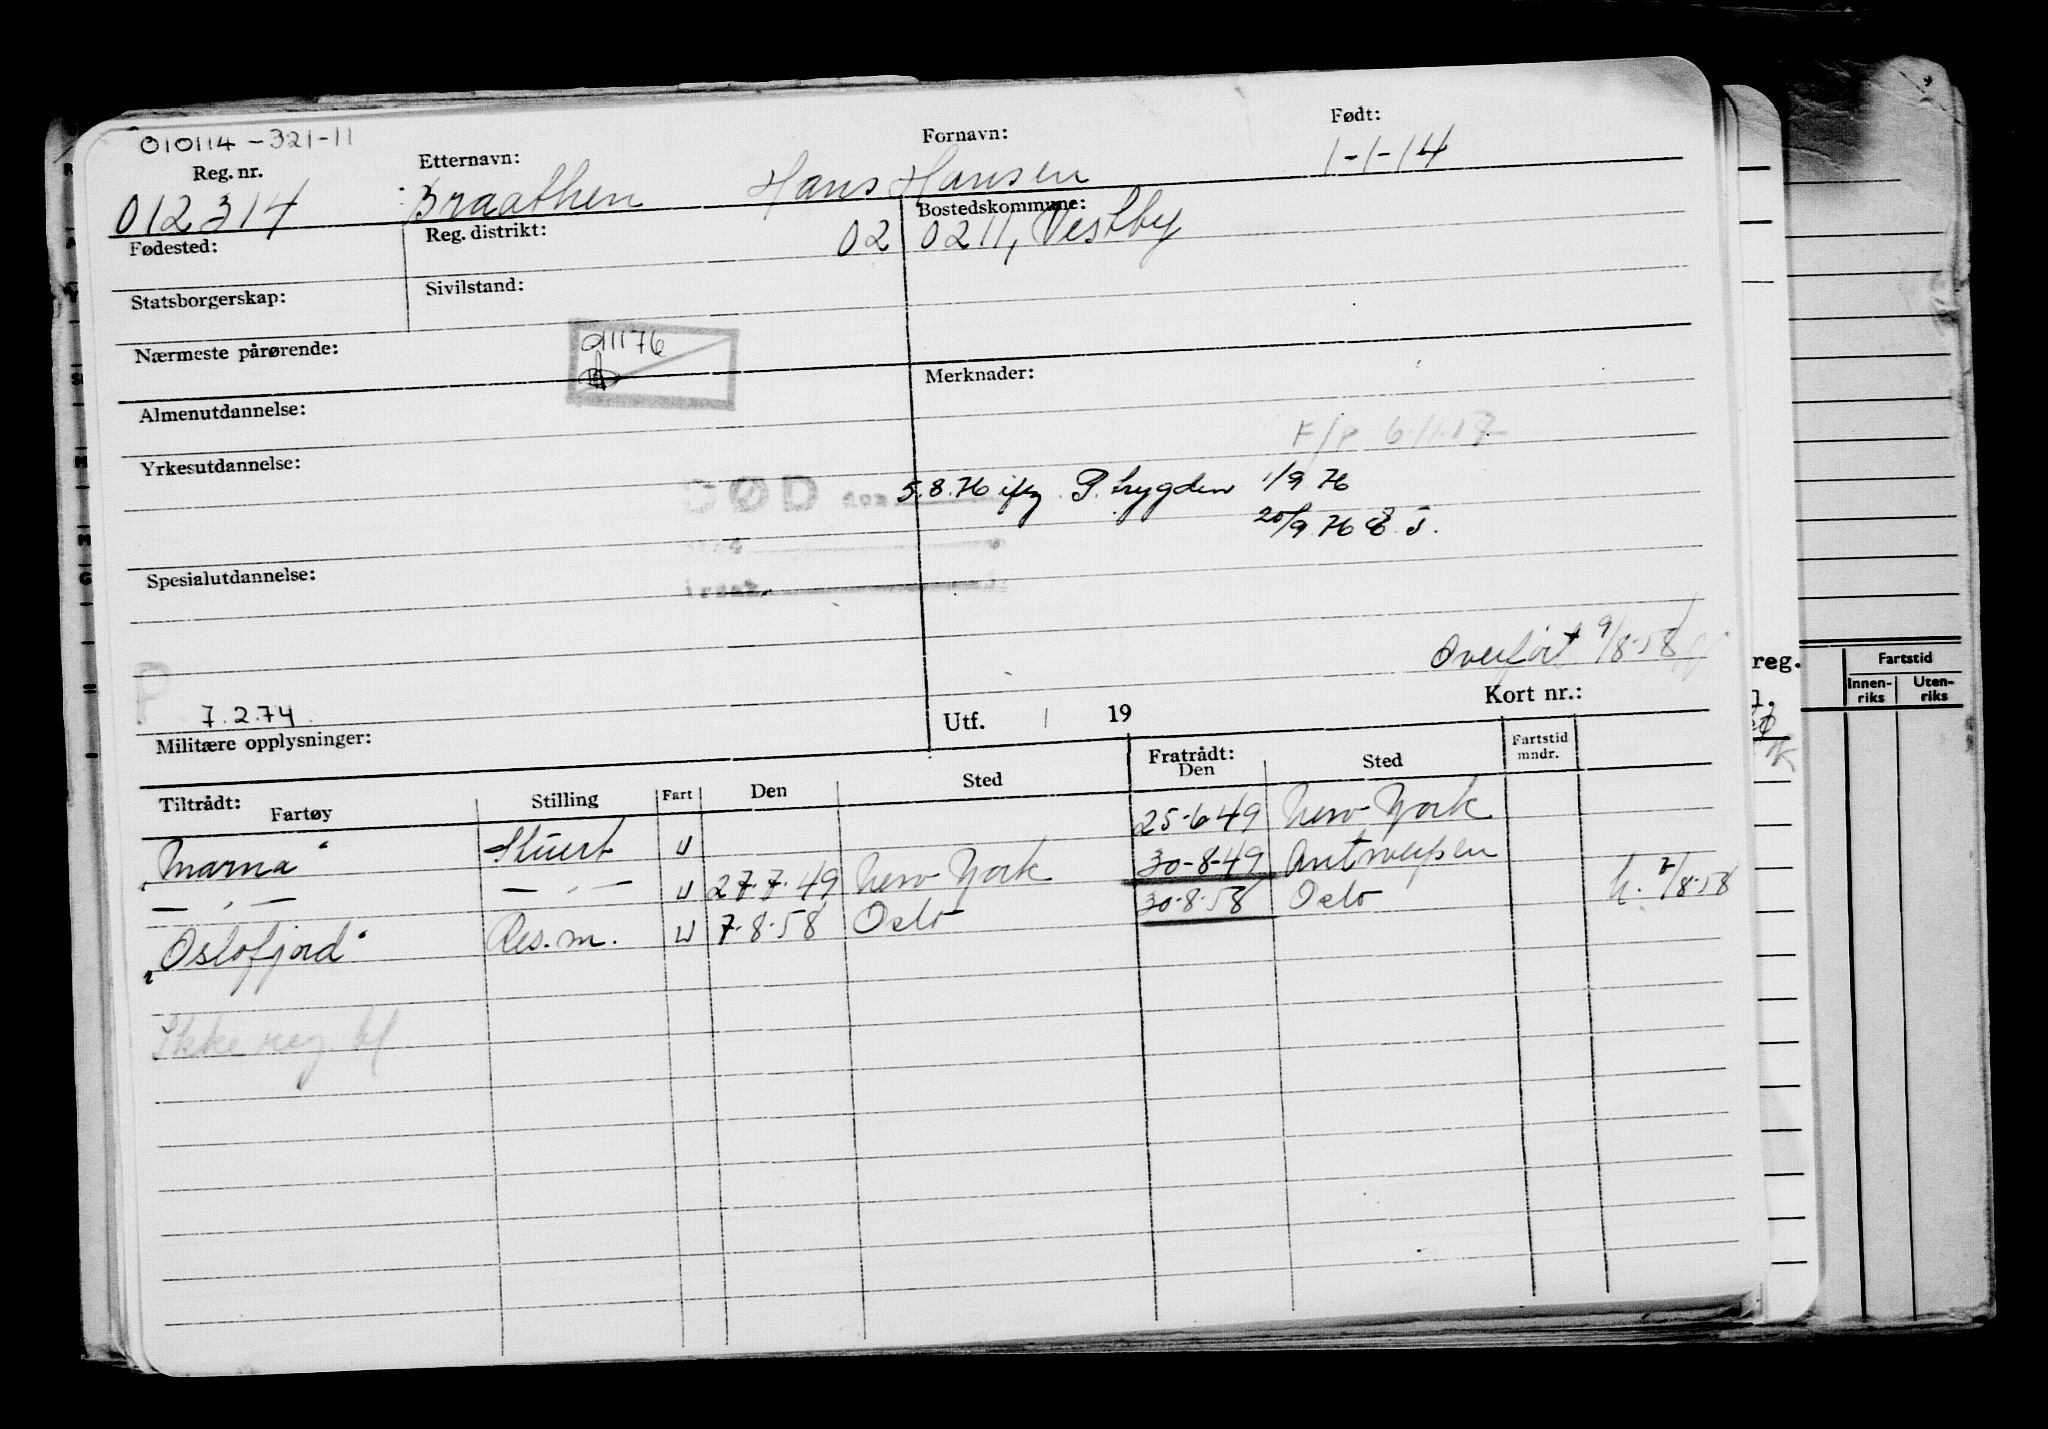 010114-321-11
Reg. nr. Etternavn: Fornavn: Født:
012314 Braathen Hans Hansen 1-1-14
Fødested: Reg. distrikt: 02 Bostedskommune: 0211, Vestby
Statsborgerskap: Sivilstand:
Nærmeste pårørende: 011176
Merknader:
Almenutdannelse:
F/P 6-11-17
Yrkesutdannelse:
DØD 5.8.76 iflg. P. trygden 1/9 76
20/9 76
Sted
Spesialutdannelse:
Overført 9/8-58
P
7.2.74
Utf. 19 Kort nr.:
Militære opplysninger:
Tiltrådt: Fratrådt:
Fartøy Stilling Fart Den Sted Den Sted Fartstid mndr.
"Marna" Stuert U 25-6-49 New York
— " — — " — U 27-7-49 New York 30-8-49 Antwerpen
"Oslofjord" Res.m. U 7-8-58 Oslo 30-8-58 Oslo
Ikke reg. bl
reg.
Fartstid
Innen-riks Uten-riks